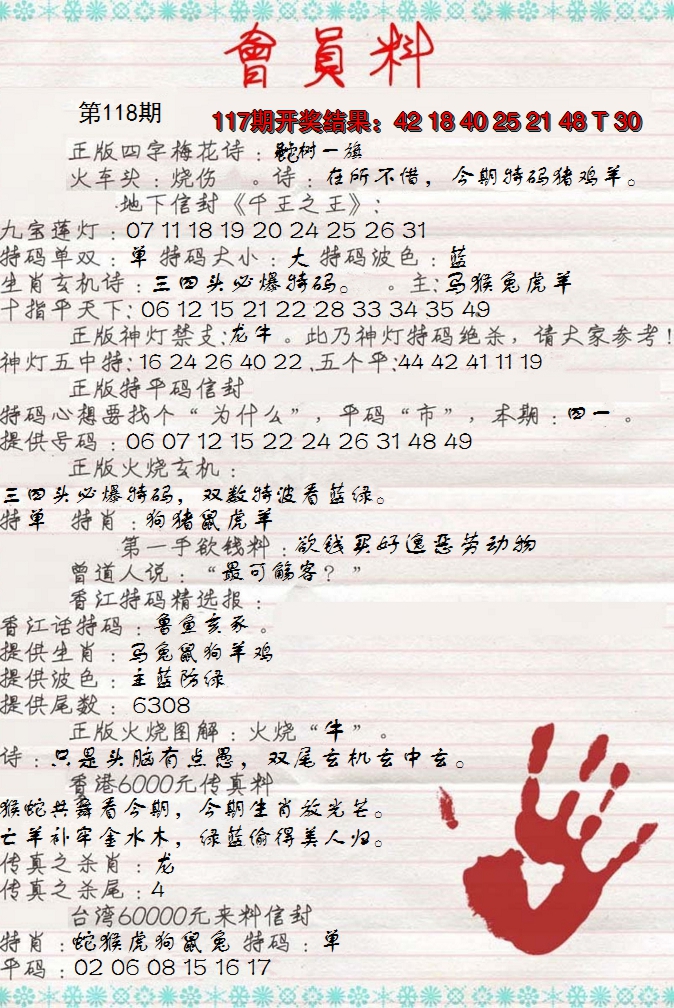 會員料
第118期
117期开奖结果：42 18 40 25 21 48 T 30
正版四字梅花诗：树一旗
火车头：烧伤 。诗：在所不惜，今期特码猪鸡羊。
地下信封《千王之王》：
九宝莲灯：07 11 18 19 20 24 25 26 31
特码单双：单 特码大小：大 特码波色：蓝
生肖玄机诗：三四头必爆特码。 。主：马猴兔虎羊
十指平天下：06 12 15 21 22 28 33 34 35 49
正版神灯禁支：龙牛。此乃神灯特码绝杀，请大家参考！
神灯五中特：16 24 26 40 22 .五个平：44 42 41 11 19
正版特平码信封
特码心想要找个“为什么”，平码“市”，本期：四一。
提供号码：06 07 12 15 22 24 26 31 48 49
正版火烧玄机：
三四头必爆特码，双数特波看蓝绿。
特单 特肖：狗猪鼠虎羊
第一手欲钱料：欲钱买好逸恶劳动物
曾道人说：“最可觞客？”
香江特码精选报：
香江话特码：鲁鱼亥豕。
提供生肖：马兔鼠狗羊鸡
提供波色：主蓝防绿
提供尾数：6308
正版火烧图解：火烧“牛”。
诗：只是头脑有点愚，双尾玄机玄中玄。
香港6000元传真料
猴蛇共舞看今期，今期生肖放光芒。
亡羊补牢金水木，绿蓝偷得美人归。
传真之杀肖：龙
传真之杀尾：4
台湾60000元来料信封
特肖：蛇猴虎狗鼠兔 特码：单
平码：02 06 08 15 16 17